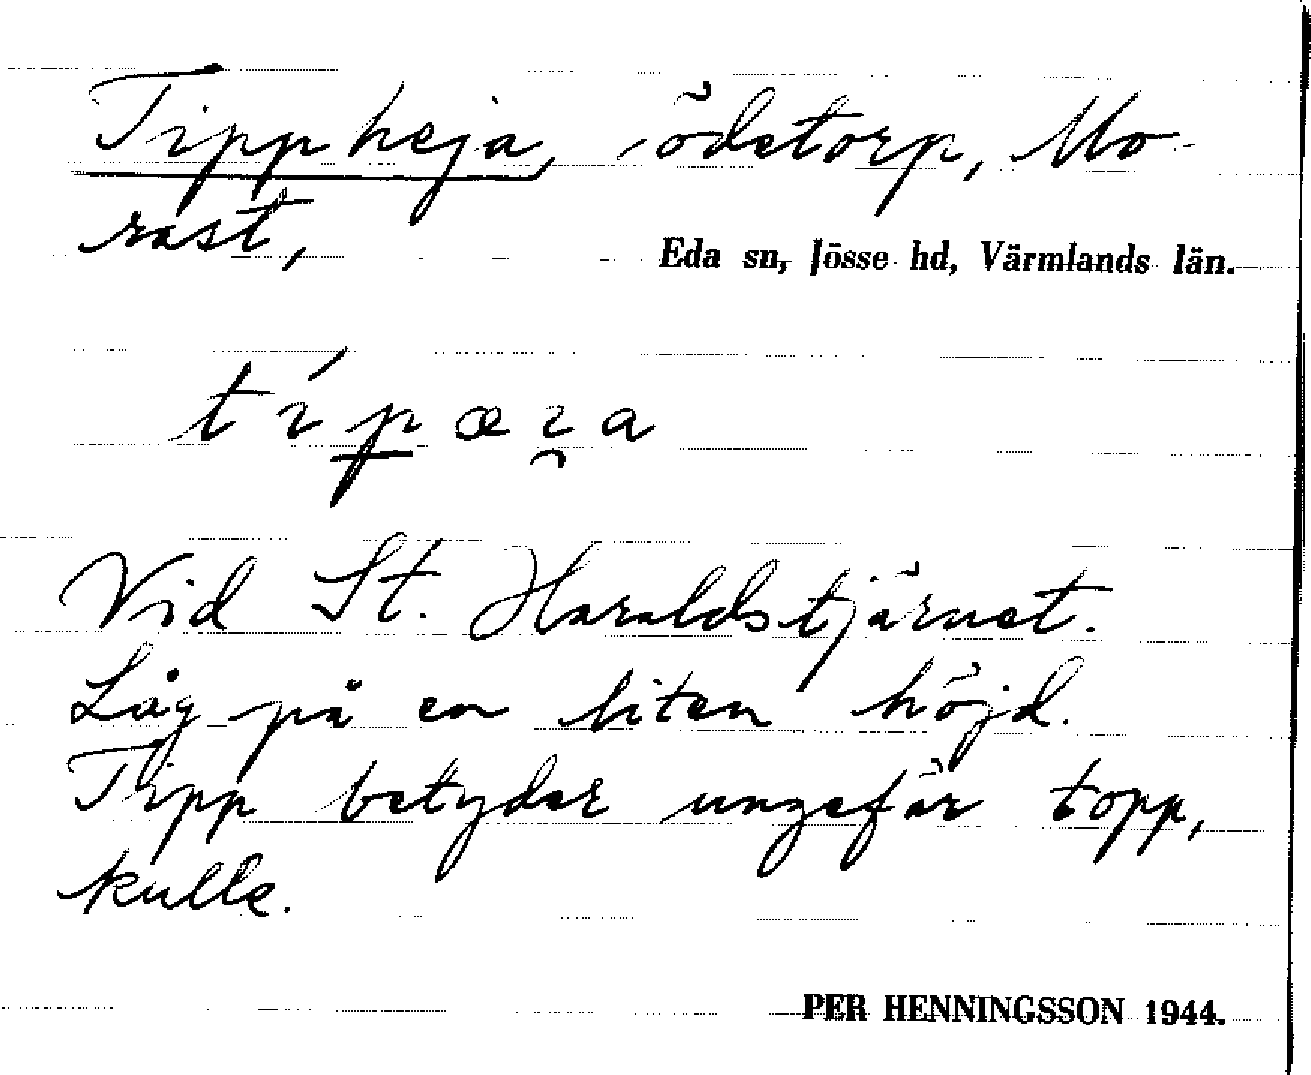 Tippheja, ödetorp, Mo-
rast,
Eda sn, Jösse hd, Värmlands län.
Vid St. Haraldstjärnet.
Låg på en liten höjd.
Tipp betyder ungefär topp,
kulle.
PER HENNINGSSON 1944.